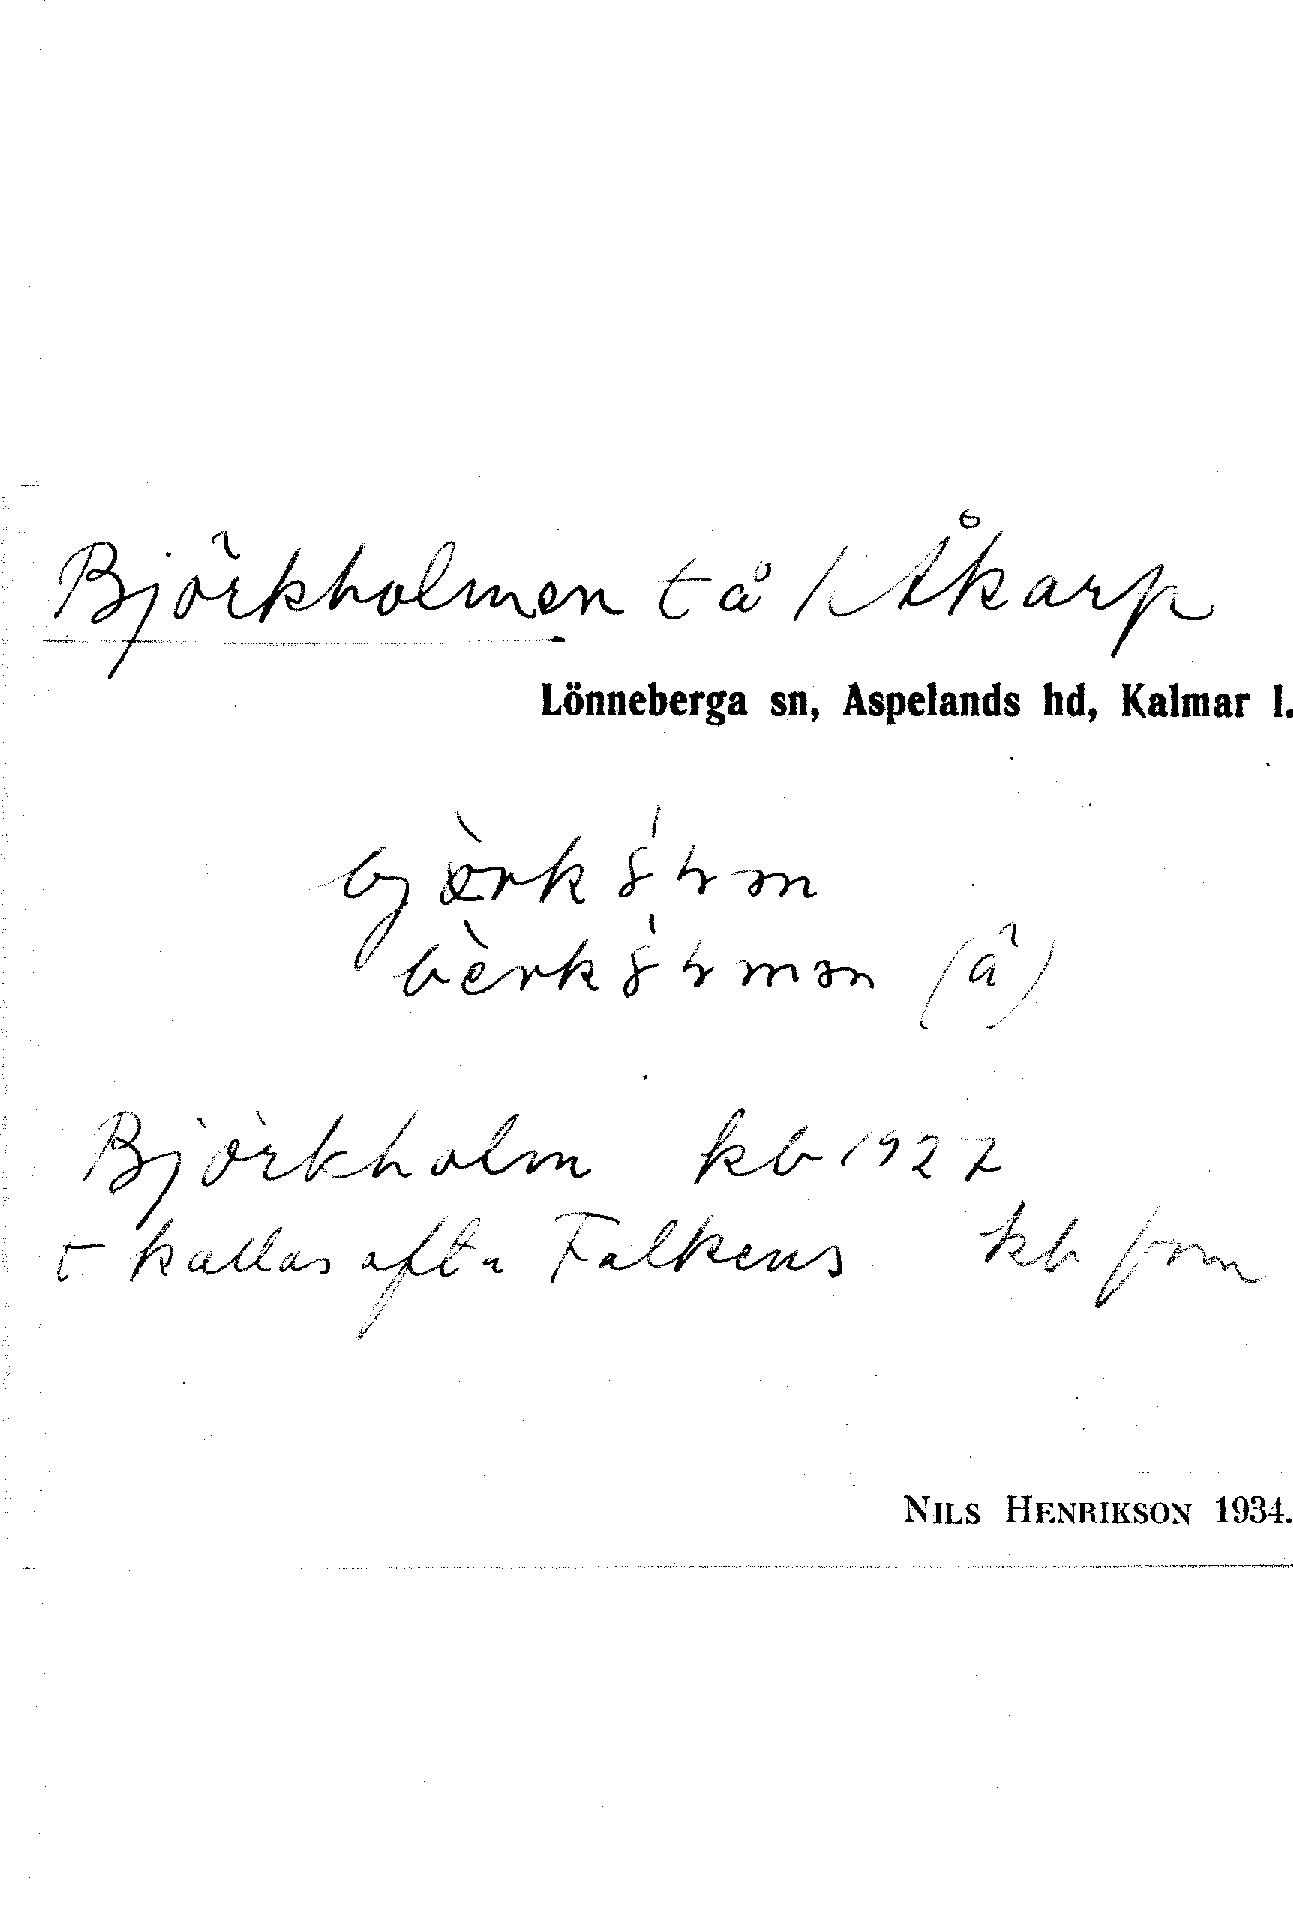 Björkholmen t å 1 Åkarp
Lönneberga sn, Aspelands hd, Kalmar l.
(å)
Björkholm kb 1927
t kallas ofta Falkens kb fvm
NILS HENRIKSON 1934.